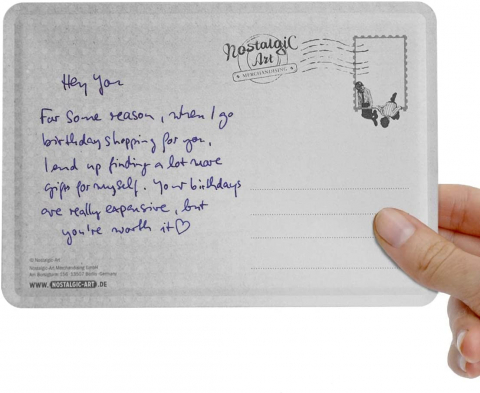 Nostalgic
Art
MERCHANDISING
Hey You
For some reason, when I go
birthday shopping for you,
I end up finding a lot more
gifts for myself. Your birthdays
are really expensive, but
you're worth it♡
© Nostalgic-Art
Nostalgic-Art Merchandising GmbH
Berlin Germany
WWW.NOSTALGIC-ART.DE